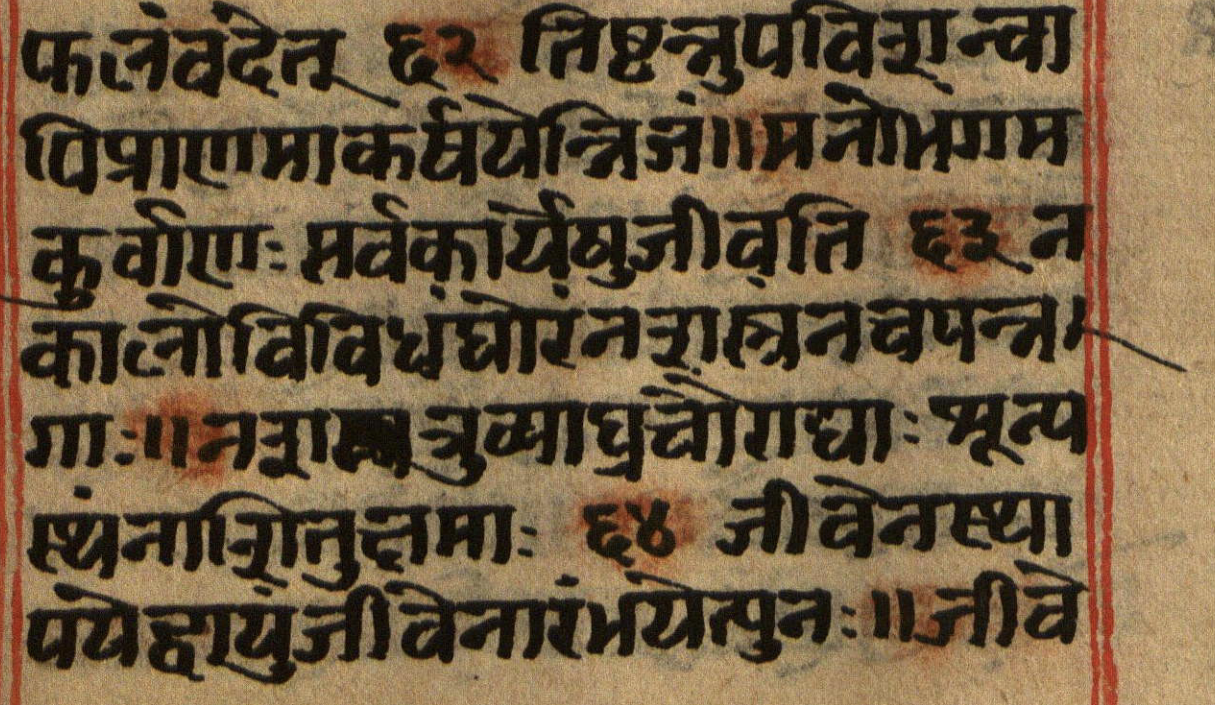 फलंवदेत् ६२ तिष्टन्नुपविशन्वा
पिप्राणमाकर्षयेन्निजं॥मनोभगम
कुर्वाणः सर्वकार्येषुजीवति ६३ न
कालोविविधघोरंनशस्त्रनचपन्न
गाः॥नशत्रुव्याघ्रचौराद्याः शून्य
स्थंनाशितुक्षमाः ६४ जीवेनस्था
पयेद्वायुंजीवेनारंभयेत्पुनः॥जीवे